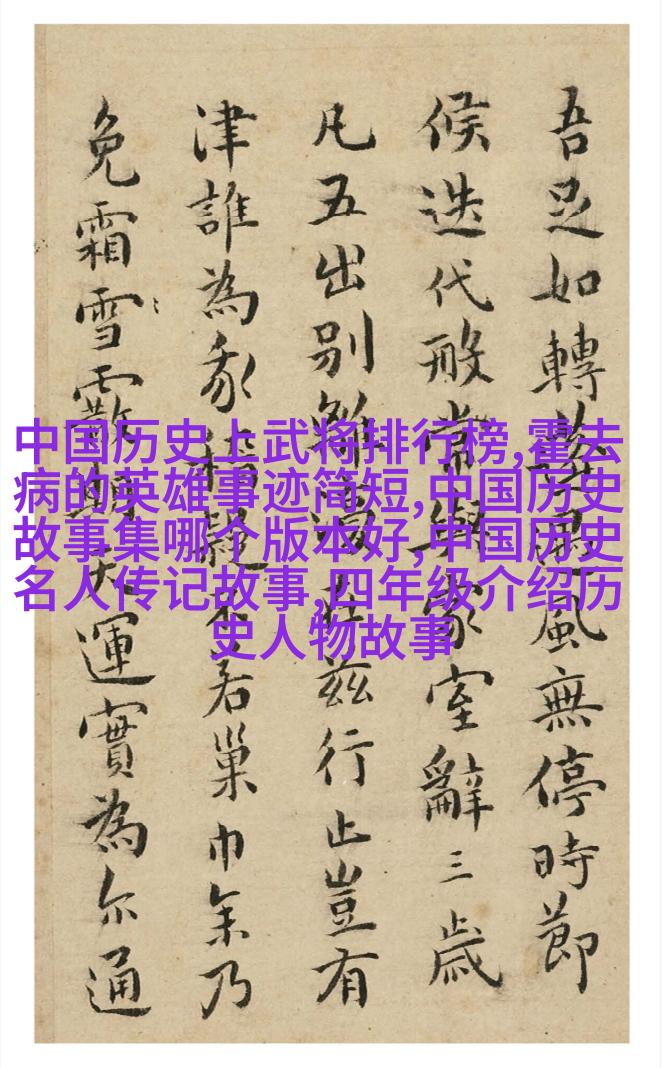 中国历史上武将排行榜,霍去
病的英雄事迹简短,中国历史
故事集哪个版本好,中国历史
名人传记故事,四年级介绍历
史人物故事
吾足如轉風無停時節
候迭代常與家室辭三歲
凡五出別離茲行止豈有
津誰為稽疑不若巢余乃
免霜雪霰天運實為尔通